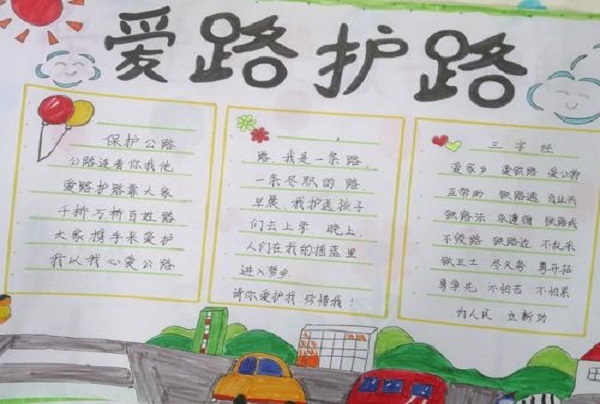 爱路护路
保护公路
公路连着你我他
爱路护路靠大家
千桥万桥百姓路
大家携手来爱护
我以我心爱公路
路,我是一条路,
一条尽职的路
早晨,我护送孩子
们去上学 晚上,
人们在我的摇篮里
进入梦乡
请你爱护我 珍惜我!
三字经
爱家乡 爱铁路
互帮助 铁路通
铁路乐 铁路
不毁路 铁路边 不乱来
铁卫士 尽义务 勇开拓
勇争先 不怕苦 不怕累
为人民 立新功